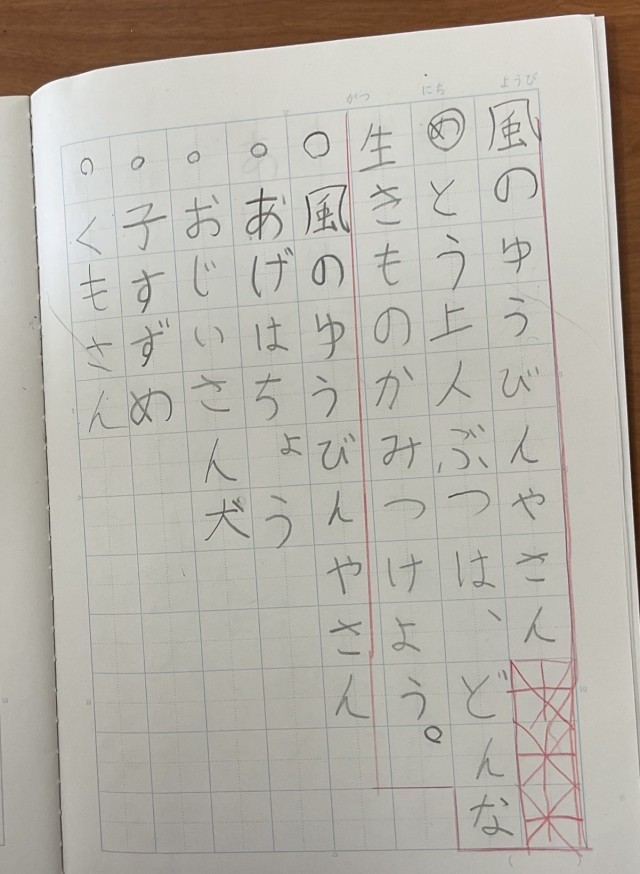 がつ にち ようび
風のゆうびんやさん
めとう上人ぶつは、どんな
生きものかみつけよう。
○風のゆうびんやさん
○あげはちょう
○おじいさん犬
○子すずめ
○くもさん